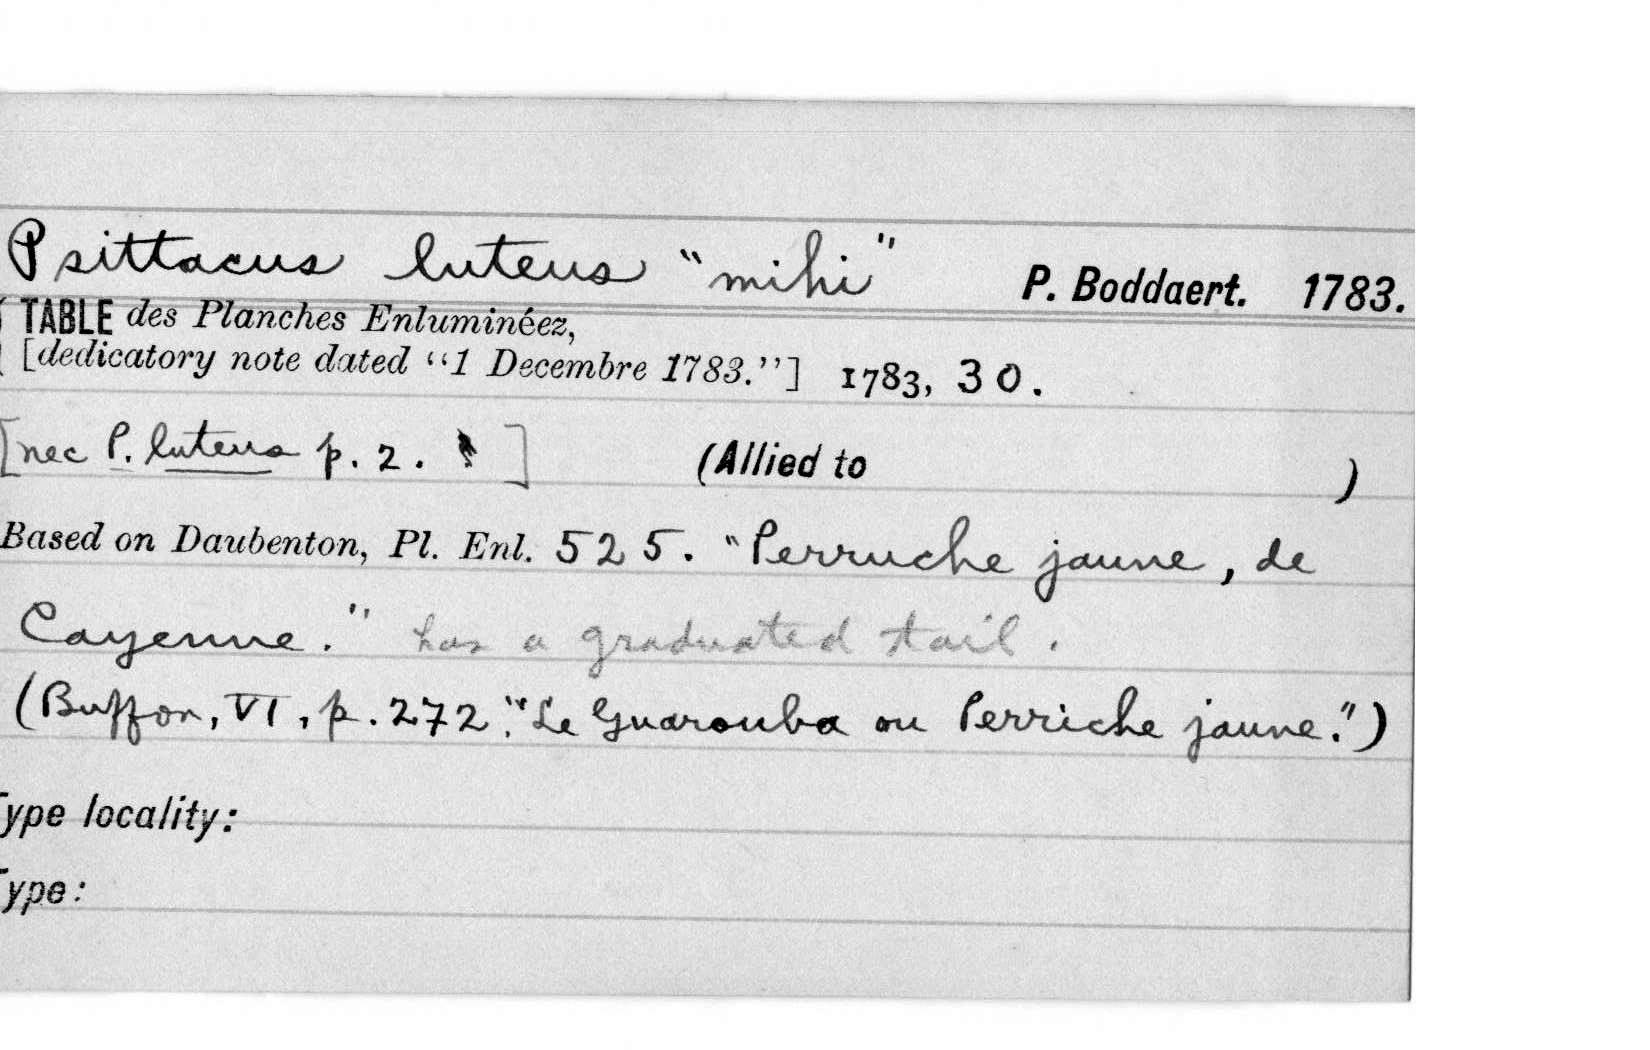 Psittacus luteus "mihi" P. Boddaert. 1783.
TABLE des Planches Enluminéez,
[dedicatory note dated "1 Decembre 1783."] 1783, 30.
[nec P. luteus p. 2. ] (Allied to )
Based on Daubenton, Pl. Enl. 525. "Perruche jaune, de
Cayenne." has a graduated tail.
(Buffon, VI, p. 272. "Le Guarouba ou Perriche jaune.")
Type locality:
Type: